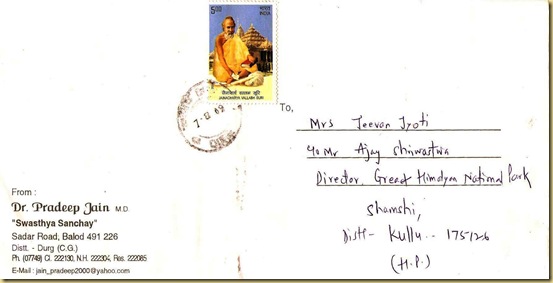 5.00 भारत INDIA
जैनाचार्य वल्लभ सूरि
JAINACHARYA VALLABH SURI
To,
Mrs Jeevan Jyoti
c/o Mr Ajay Shriwastwa
Director, Great Himalyan National Park
Shamshi,
Distt- Kullu - 175126
(H.P.)
From :
Dr. Pradeep Jain M.D.
"Swasthya Sanchay"
Sadar Road, Balod 491 226
Distt. - Durg (C.G.)
Ph. (07749) Cl. 222130, N.H. 222304, Res. 222085
E-Mail : jain_pradeep2000@yahoo.com